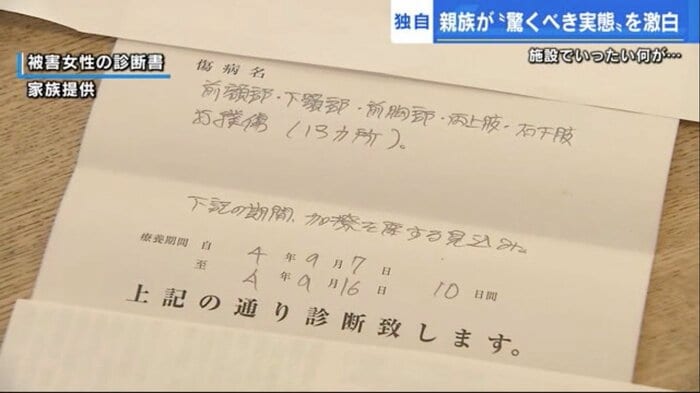 独自 親族が〝驚くべき実態〟を激白
施設でいったい何が…
被害女性の診断書
家族提供
傷病名
前頭部・下顎部・前胸部・両上肢・右下肢
打撲傷(13カ所)。
下記の期間、加療を要する見込み。
療養期間 自 4年9月7日
至 4年9月16日 10日間
上記の通り診断致します。